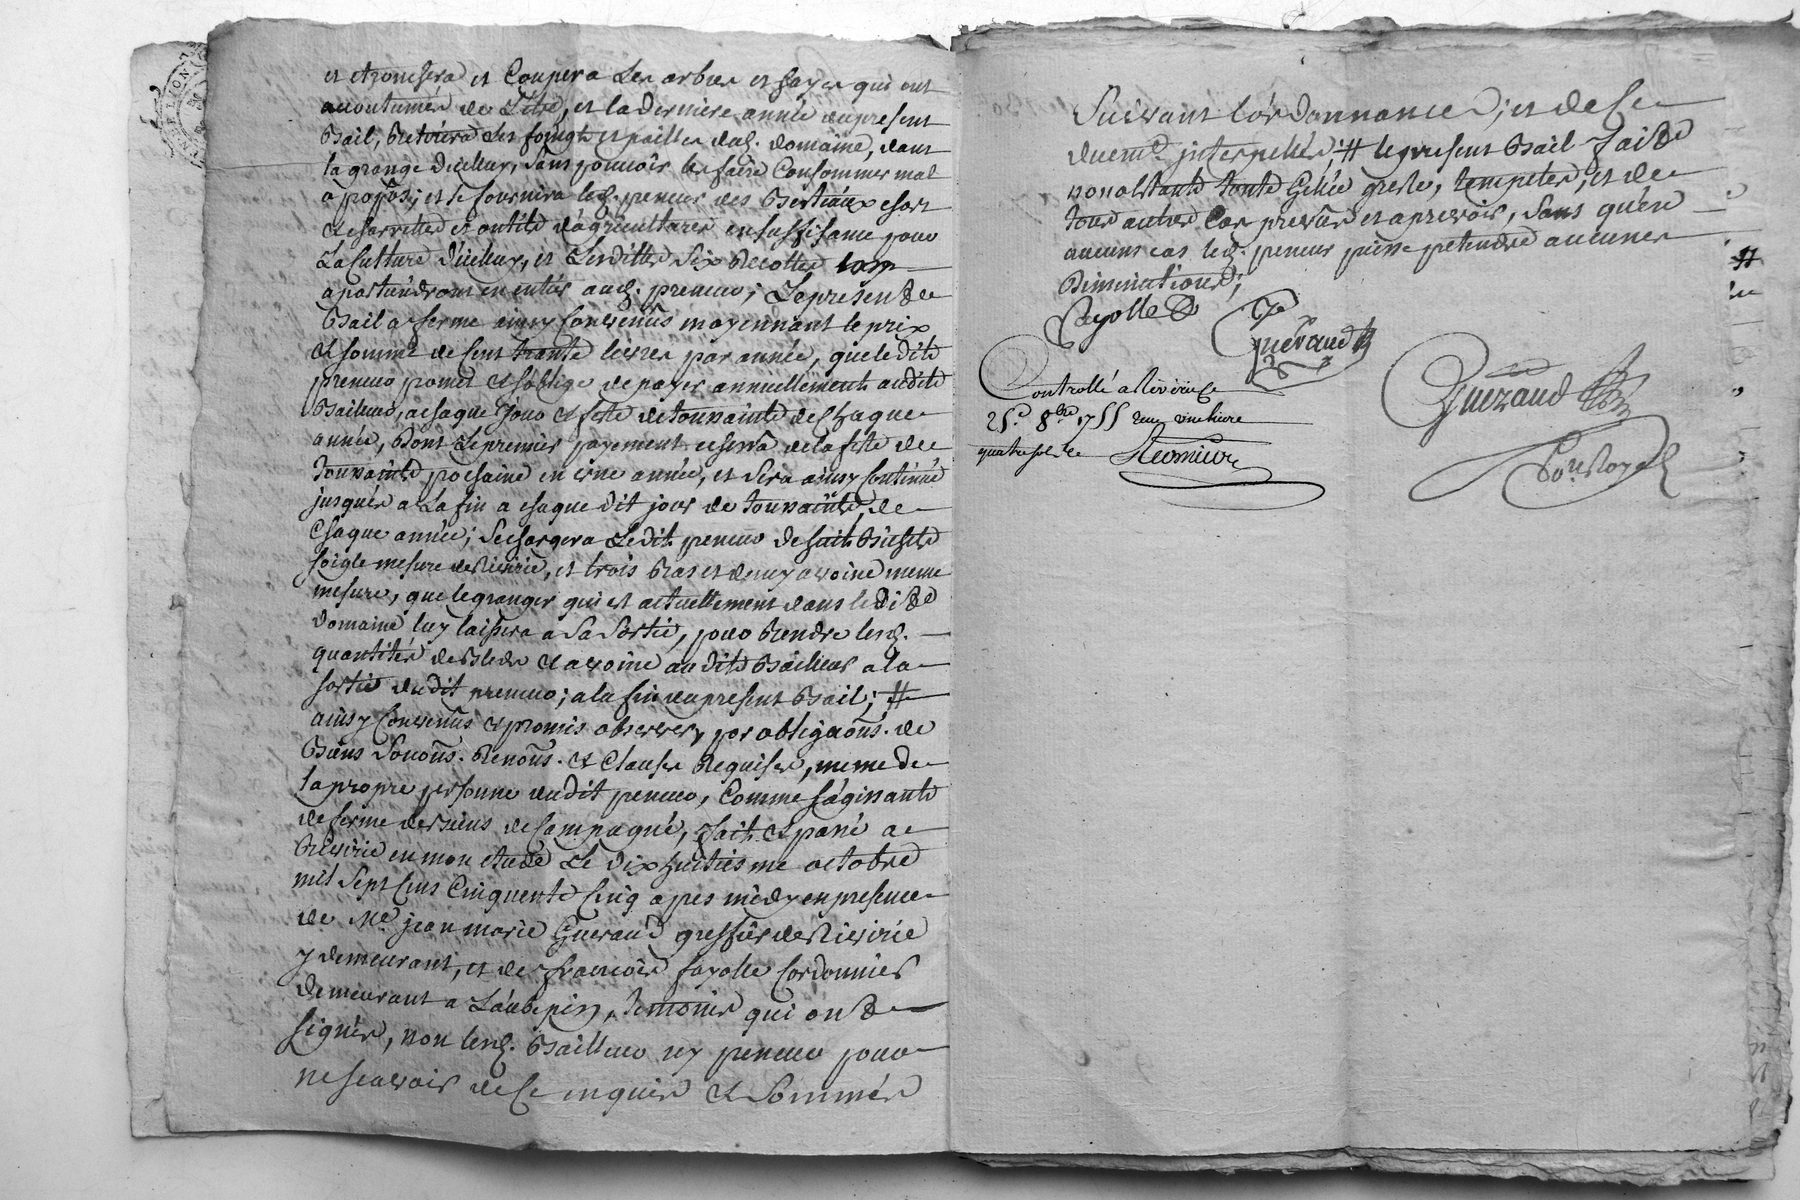 et etronssera et Coupera Les arbres et hayes qui ont
accoutumés de L'etre, et la derniere année du present
Bail, Retirera Les foingts et pailles dud. domaine, dans
la grange D'icelluy, sans pouvoir les faire Consommer mal
a propos; et se fournira led. preneur des Bestiaux chars
et charrettes et outils d'agriculture en suffisame pour
La Culture D'icelluy, et Lesdittes Six Recoltes
apartiendront en entier aud. preneur; Le present
Bail a ferme ainsy Convenus moyennant le prix
et somme de Cent trante livres par année, que ledit
preneur promet et s'oblige de payer annuellement audit
Bailleur, a chaque Jour et fete de toussaint de Chaque
année, Dont Le premier payement se fera de la fete de
Toussaint prochaine en une année, et sera ainsy Continué
jusques a La fin a chaque dit jour de toussaint, de
Chaque année; Se chargera Ledit preneur de huit Bichets
soigle mesure de Riverie, et trois Ras et demy avoine meme
mesure, que le granger qui est actuellement dans ledit
Domaine luy laissera a Sa Sortie, pour Rendre lesd.
quantités de Bleds et avoine audit Bailleur a la
sortie dudit preneur; a la fin du present Bail; #
ainsy Convenus et promis observer, par obligaons. de
Biens Soumons. Renons. et Clauses Requises, meme de
la propre personne dudit preneur, Comme s'agissant
de ferme de Biens de Campagne, fait et passé a
Riverie en mon etude Le Dix huitiesme octobre
mil Sept Cens Cinquente Cinq apres midy en presence
de Me. jean marie Gueraud greffier de Riverie
y demeurant, et de françois fayolle Cordonnier
demeurant a L'aubepin, temoins qui ont
signés, non lesd. Bailleur ny preneur pour
ne scavoir de Ce enquis et Sommés
Suivant l'ordonnance; et de Ce
duemt. interpellés; # le present Bail fait
nonobstant toute Gellée gresle, tempetes, et de
tous autres Cas prevus et aprevoir, Sans qu'en
aucuns cas led. preneur puisse pretendre aucunes
Diminutions;
Fayolle
Gueraud
Controllé a Riverie Ce
25e. 8bre 1755 reçu une livre
quatre sols
Gueraud
No. Royal